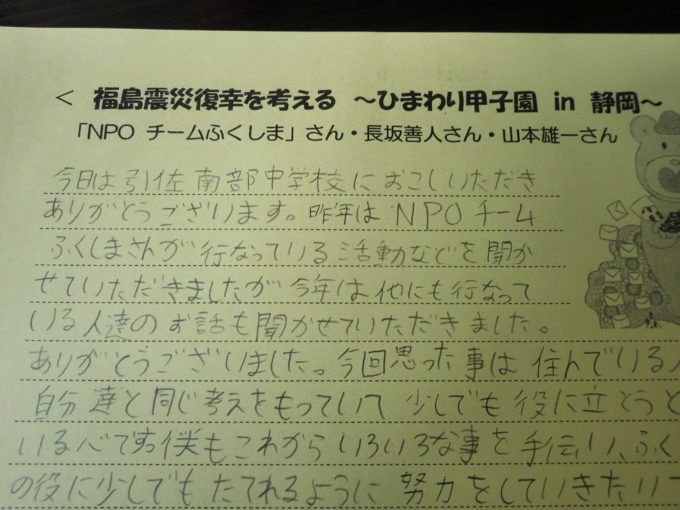 < 福島震災復幸を考える ～ひまわり甲子園 in 静岡～
「NPO チームふくしま」さん・長坂善人さん・山本雄一さん
今日は引佐南部中学校におこしいただき
ありがとうございます。昨年はNPOチーム
ふくしまさんが行なっている活動などを聞か
せていただきましたが今年は他にも行なって
いる人達のお話も聞かせていただきました。
ありがとうございました。今回思った事は住んでいる
自分達と同じ考えをもっていて少しでも役に立とうと
いる です。僕もこれからいろいろな事を手伝い、ふく
の役に少しでもたてれるように努力をしていきたいで